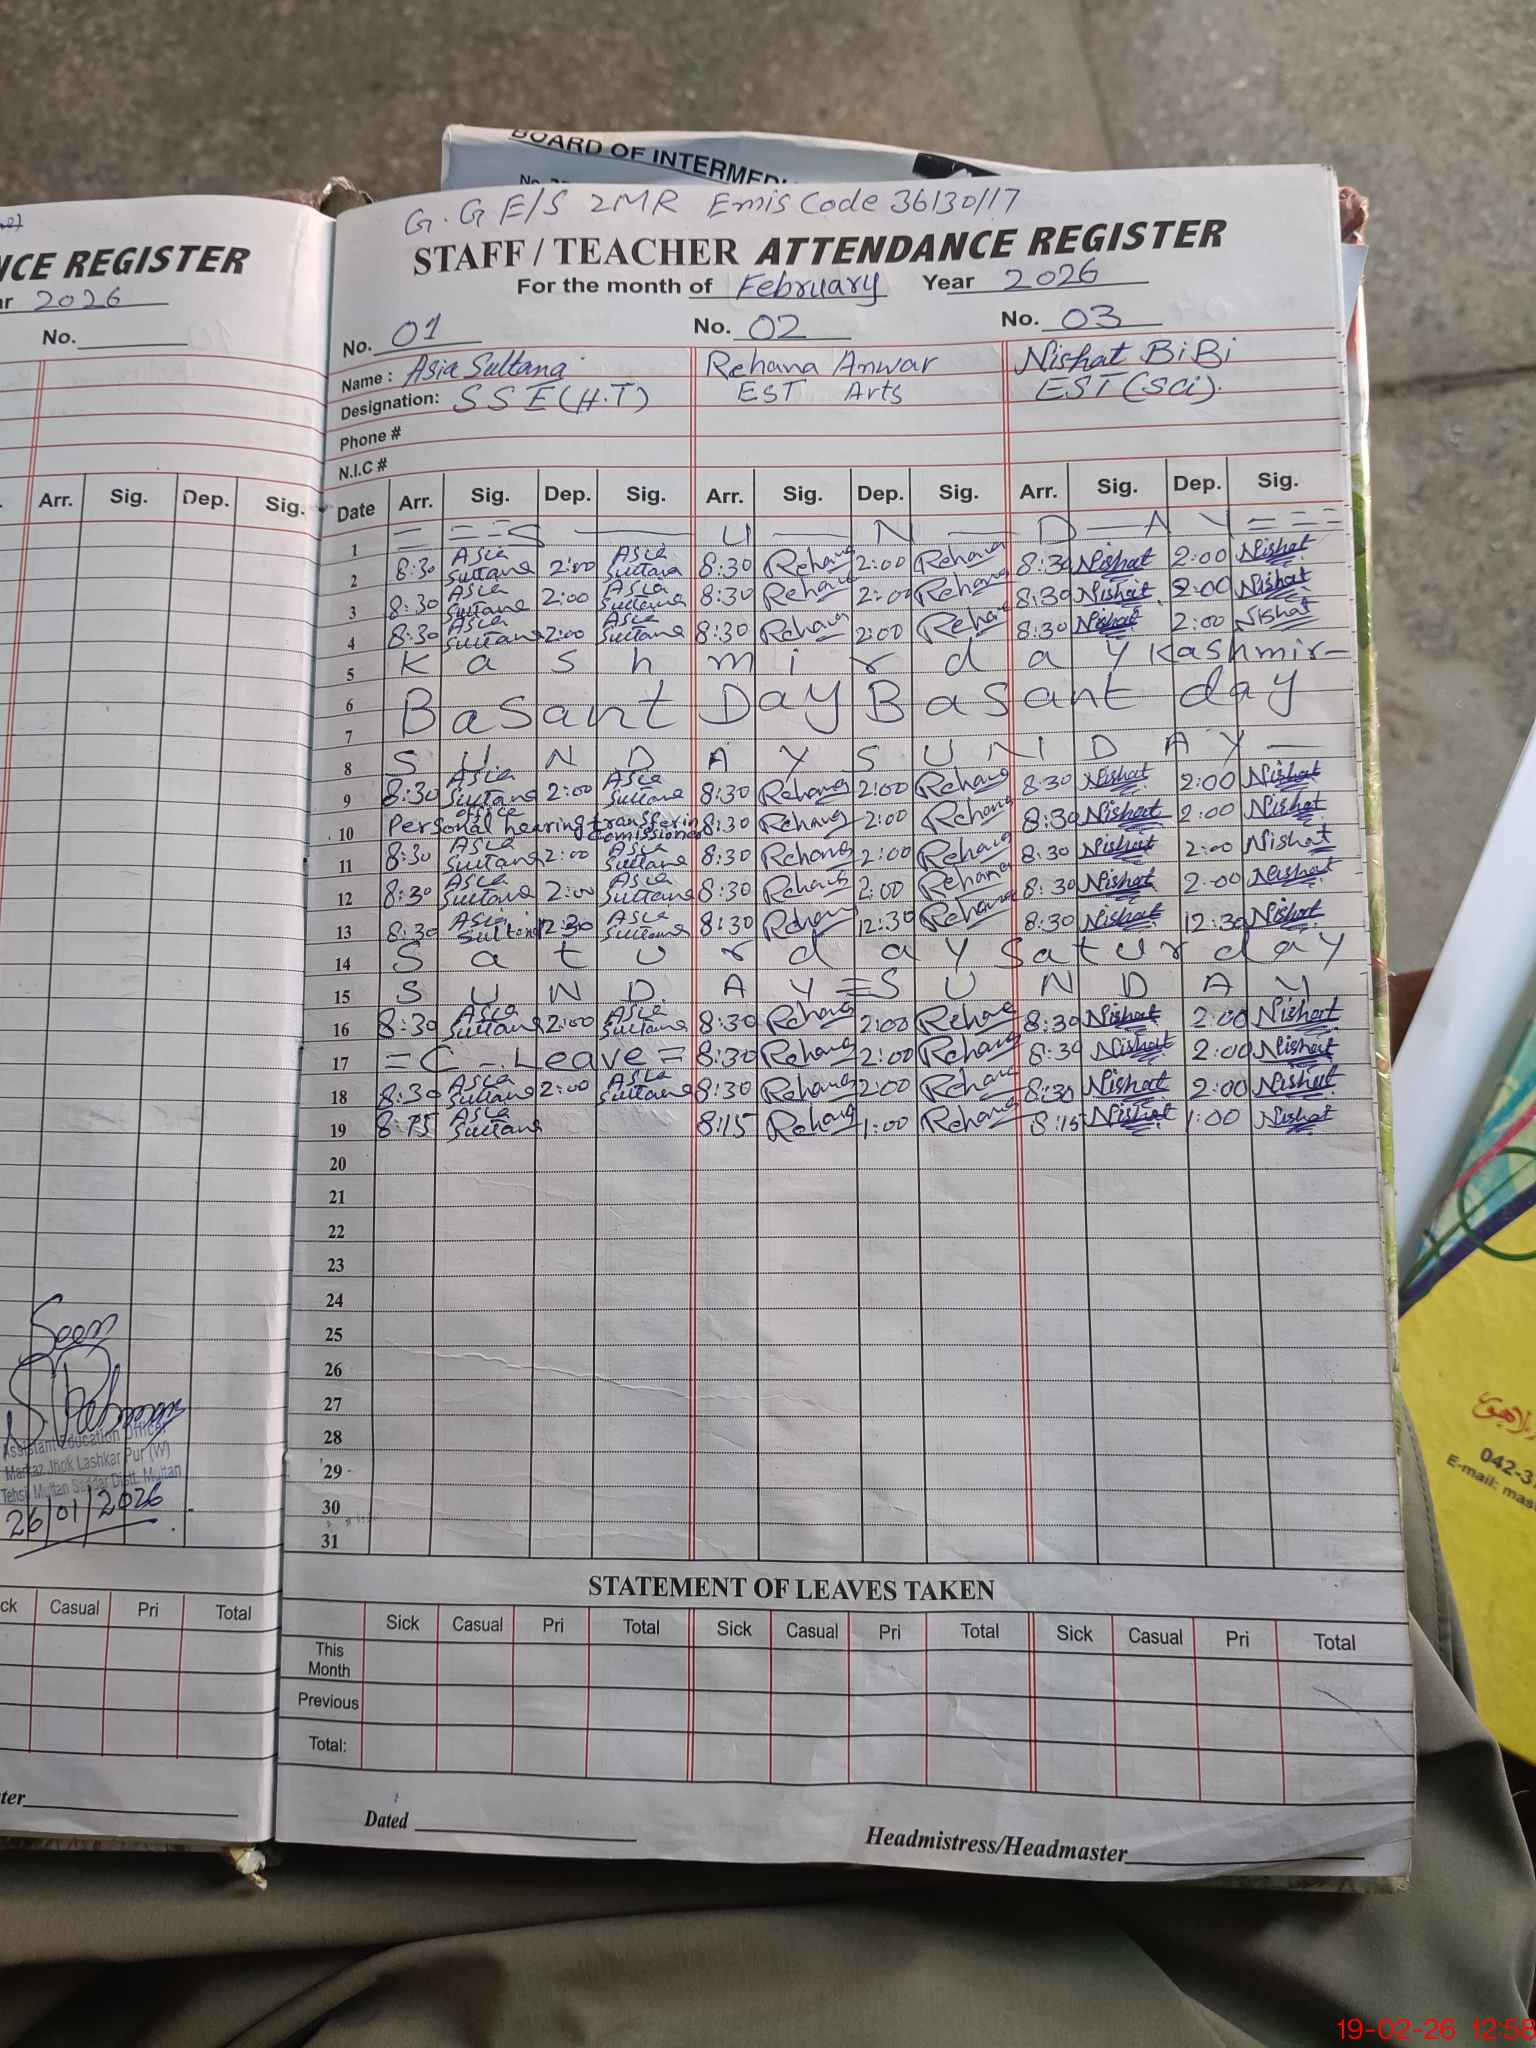 BOARD OF INTERMEDI
G.G E/S 2MR Emis Code 36130117
NCE REGISTER
2026
No.
Arr. Sig. Dep. Sig.
STAFF / TEACHER ATTENDANCE REGISTER
For the month of February Year 2026
No. 01 No. 02 No. 03
Name : Asia Sultana Rehana Anwar Nishat BiBi
Designation: SSE (H.T) EST Arts EST (Sci).
Phone #
N.I.C #
Date Arr. Sig. Dep. Sig. Arr. Sig. Dep. Sig. Arr. Sig. Dep. Sig.
1 = = = S — U — N — D — A Y = = =
2 8:30 Asia Sultana 2:00 Asia Sultana 8:30 Rehana 2:00 Rehana 8:30 Nishat 2:00 Nishat
3 8:30 Asia Sultana 2:00 Asia Sultana 8:30 Rehana 2:00 Rehana 8:30 Nishat 2:00 Nishat
4 8:30 Asia Sultana 2:00 Asia Sultana 8:30 Rehana 2:00 Rehana 8:30 Nishat 2:00 Nishat
5 K a s h m i r d a y Kashmir-
6 Basant Day Basant day
7
8 S U N D A Y S U N D A Y —
9 8:30 Asia Sultana 2:00 Asia Sultana 8:30 Rehana 2:00 Rehana 8:30 Nishat 2:00 Nishat
10 Personal hearing transfer in Comissioner office 8:30 Rehana 2:00 Rehana 8:30 Nishat 2:00 Nishat
11 8:30 Asia Sultana 2:00 Asia Sultana 8:30 Rehana 2:00 Rehana 8:30 Nishat 2:00 Nishat
12 8:30 Asia Sultana 2:00 Asia Sultana 8:30 Rehana 2:00 Rehana 8:30 Nishat 2:00 Nishat
13 8:30 Asia Sultana 12:30 Asia Sultana 8:30 Rehana 12:30 Rehana 8:30 Nishat 12:30 Nishat
14 S a t u r d a y Saturday
15 S U N D A Y = S U N D A Y
16 8:30 Asia Sultana 2:00 Asia Sultana 8:30 Rehana 2:00 Rehana 8:30 Nishat 2:00 Nishat
17 = C - Leave = 8:30 Rehana 2:00 Rehana 8:30 Nishat 2:00 Nishat
18 8:30 Asia Sultana 2:00 Asia Sultana 8:30 Rehana 2:00 Rehana 8:30 Nishat 2:00 Nishat
19 8:15 Asia Sultana 8:15 Rehana 1:00 Rehana 8:15 Nishat 1:00 Nishat
20
21
22
23
24
25
26
27
28
29
30
31
Seen
Assistant Education Officer
Markaz Jhok Lashkar Pur (W)
Tehsil Multan Saddar Distt. Multan
26/01/2026
Casual Pri Total
STATEMENT OF LEAVES TAKEN
Sick Casual Pri Total Sick Casual Pri Total Sick Casual Pri Total
This Month
Previous
Total:
Dated
Headmistress/Headmaster
042-3
E-mail: mas
19-02-26 12:58